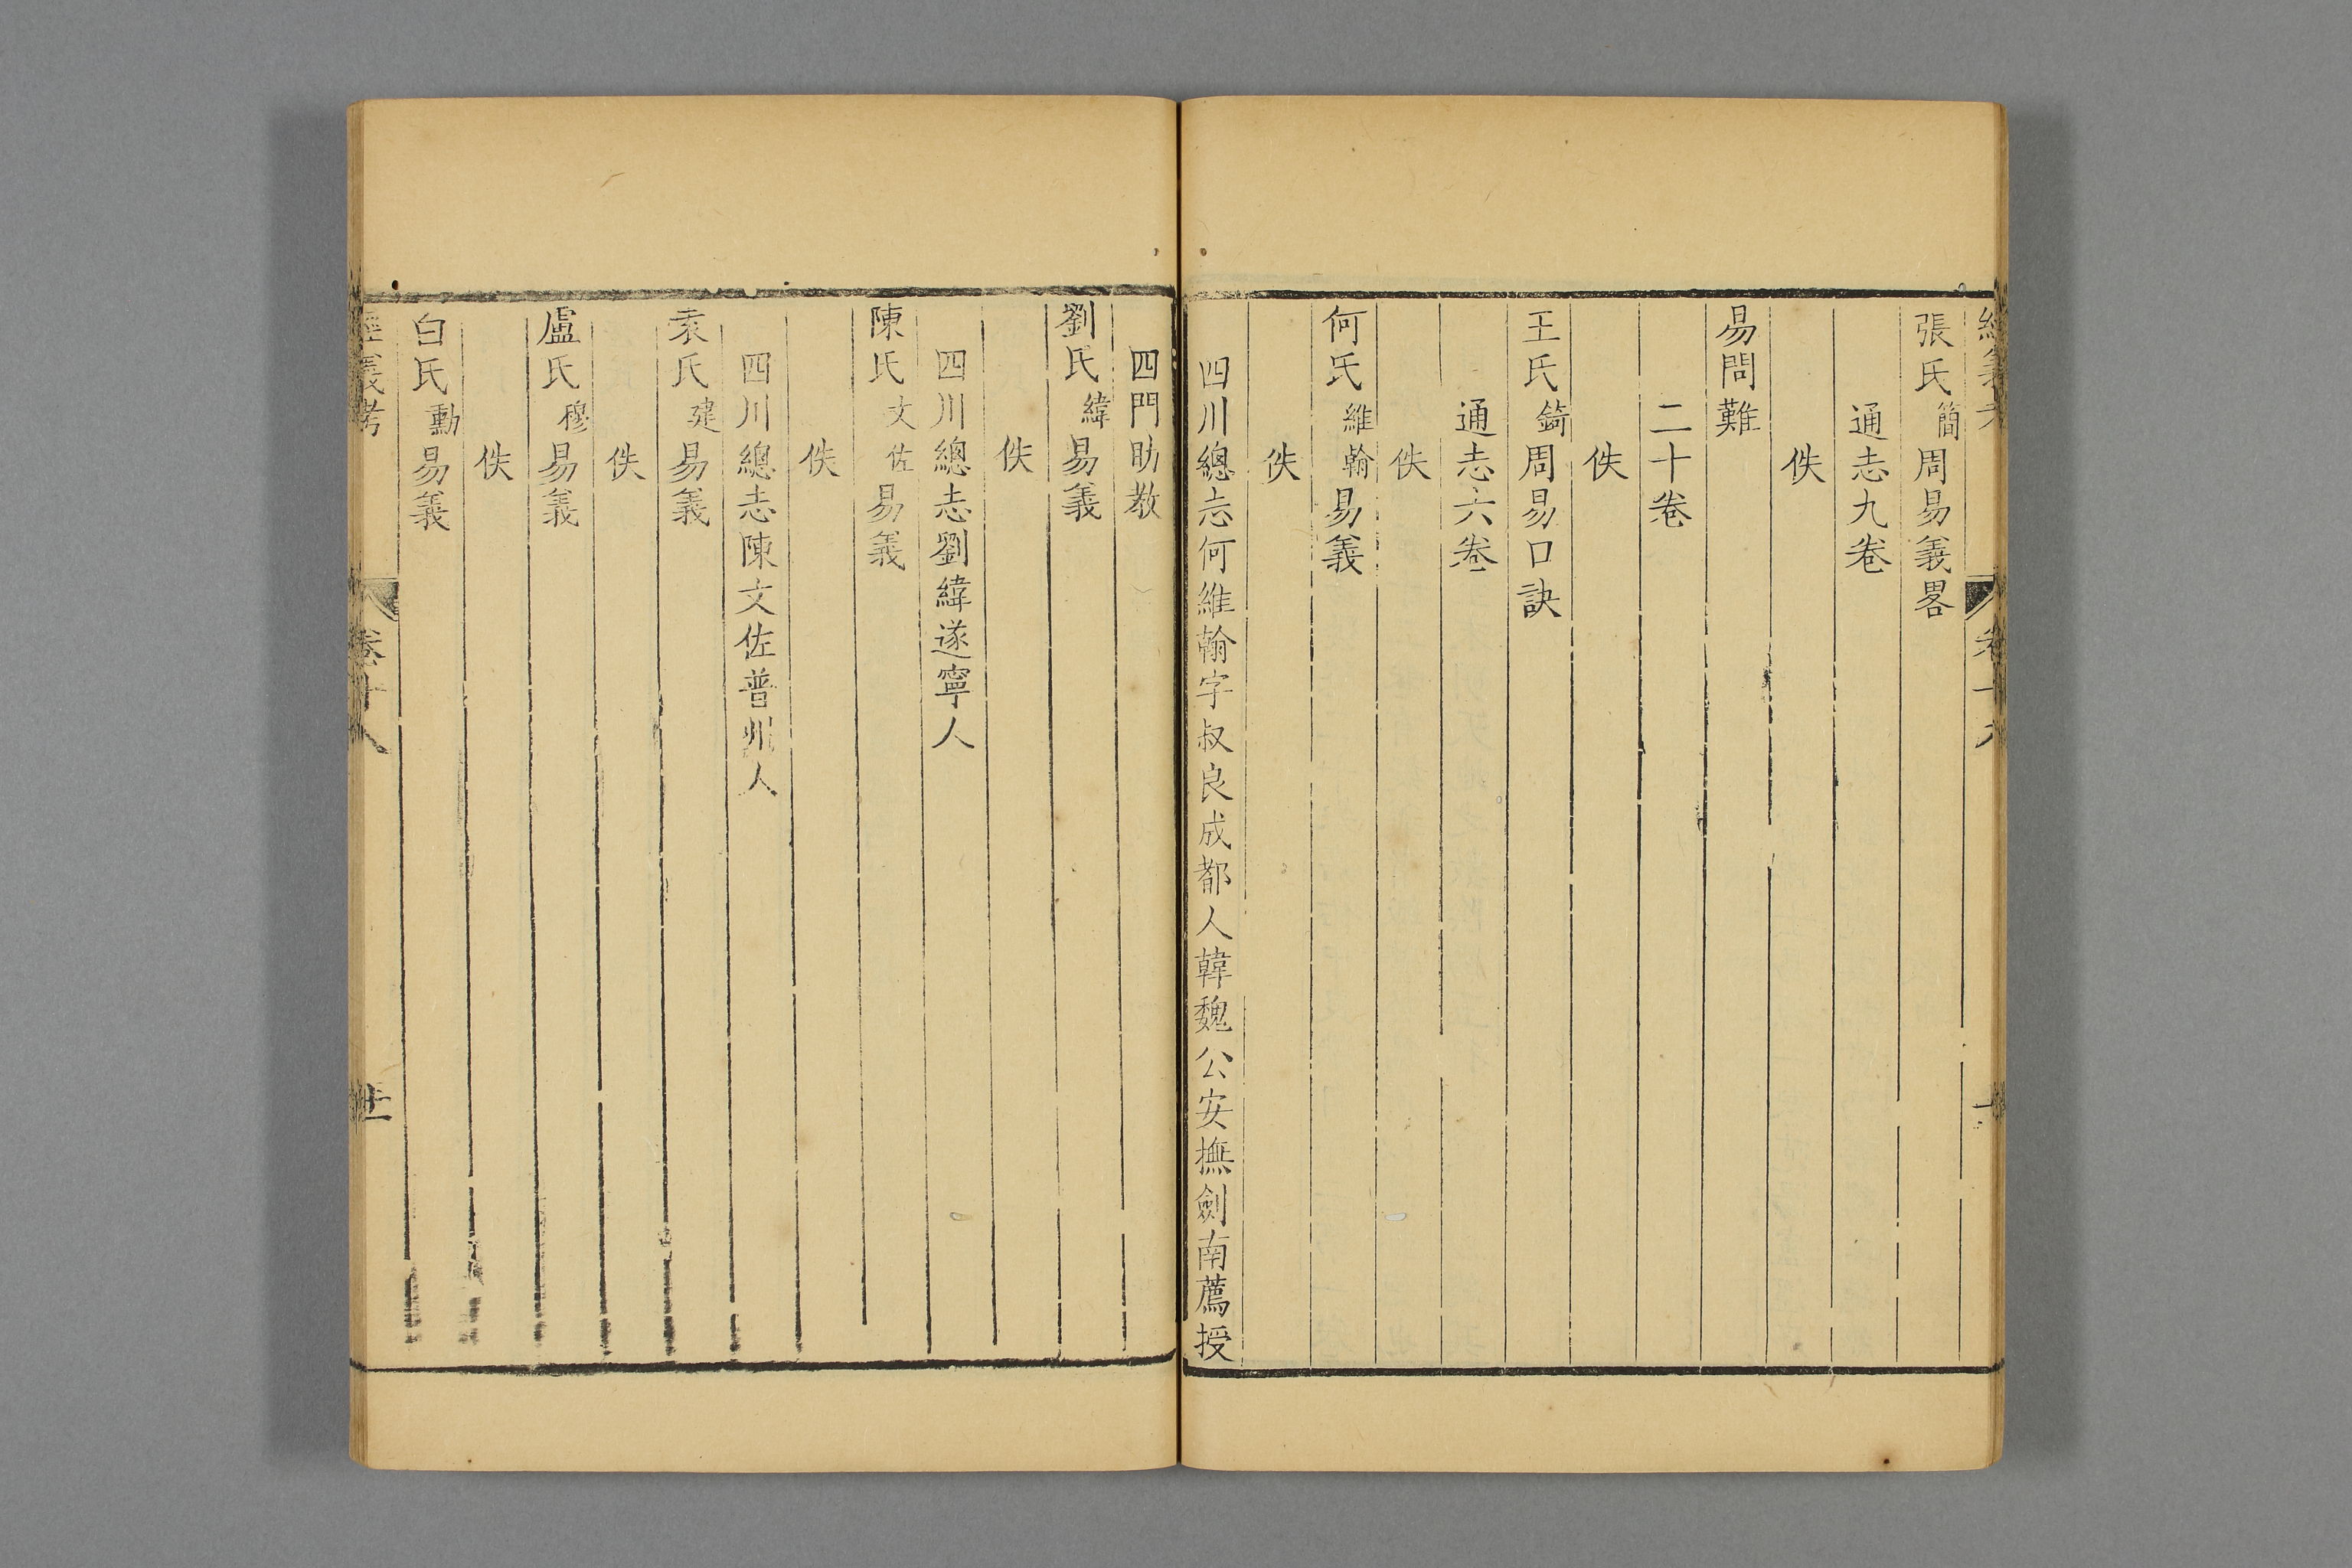 張氏簡周易義畧
通志九卷
佚
易問難
二十卷
佚
王氏錡周易口訣
通志六卷
佚
何氏維翰易義
佚
四川總志何維翰字叔良成都人韓魏公安撫劍南薦授
四門助教
劉氏緯易義
佚
四川總志劉緯遂寧人
陳氏文佐易義
佚
四川總志陳文佐普州人
袁氏建易義
佚
盧氏穆易義
佚
白氏勳易義
經義考 卷十八